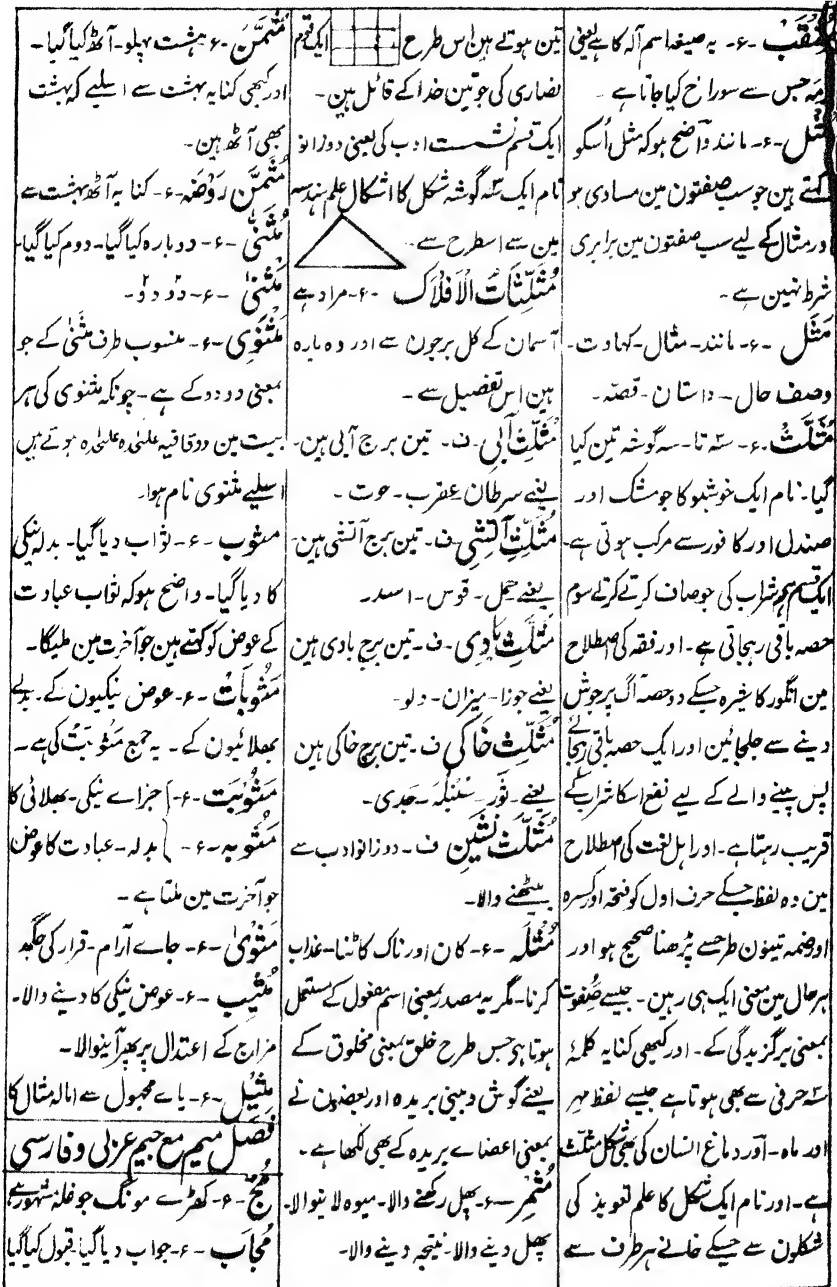 مثقب -ع- یہ صیغہ اسم آلہ کا ہے یعنی
جس سے سوراخ کیا جاتا ہے -
مثل -ع- مانند واضح ہو کہ مثل اُسکو
کہتے ہین جو سب صفتون مین مساوی ہو
اور مثال کے لیے سب صفتون مین برابری
شرط نہین ہے -
مَثَل -ع- مانند - مثال - کہاوت -
وصف حال - داستان - قصّہ -
مُثَلَّث -ع- سہ تا - سہ گوشہ تین کیا
گیا - نام ایک خوشبو کا جو مشک اور
صندل اور کافور سے مرکب ہوتی ہے -
ایک قسم ہے شراب کی جو صاف کرتے کرتے سوم
حصہ باقی رہجاتی ہے - اور فقہ کی اصطلاح
مین انگور کا شیرہ جسکے دو حصہ آگ پر جوش
دینے سے جلجائین اور ایک حصہ باقی رہجائے
پس پینے والے کے لیے نفع اسکا شراب کے
قریب رہتا ہے - اور اہل لغت کی اصطلاح
مین وہ لفظ جسکے حرف اول کو فتحہ اور کسرہ
اور ضمہ تینون طرح سے پڑھنا صحیح ہو اور
ہر حال مین معنی ایک ہی رہین - جیسے صفوت
بمعنی برگزیدگی کے - اور کبھی کنایہ کلمۂ
سہ حرفی سے بھی ہوتا ہے جیسے لفظ مہر
اور ماہ - اور دماغ انسان کی بھی شکل مثلث
ہے - اور نام ایک شکل کا علم تعویذ کی
شکلون سے جسکے خانے ہر طرف سے
تین ہوتے ہین اس طرح ایک قوم
نصاری کی جو تین خدا کے قائل ہین -
ایک قسم نشست ادب کی یعنی دوزانو
نام ایک سہ گوشہ شکل کا اشکال علم ہندسہ
مین سے اسطرح سے -
مُثَلَّثاتُ الافلاک -ع- مراد ہے
آسمان کے کل برجون سے اور وہ بارہ
ہین اس تفصیل سے -
مُثَلَّثِ آبی - ف - تین برج آبی ہین -
یعنے سرطان - عقرب - حوت -
مُثَلَّثِ آتشی - ف - تین برج آتشی ہین -
یعنے حمل - قوس - اسد -
مُثَلَّثِ بادی - ف - تین برج بادی ہین
یعنے جوزا - میزان - دلو -
مُثَلَّثِ خاکی ف - تین برج خاکی ہین
یعنے - ثور - سنبلہ - جدی -
مُثَلَّث نشین ف - دوزانو ادب سے
بیٹھنے والا -
مُثلَہ -ع- کان اور ناک کاٹنا - عذاب
کرنا - مگر یہ مصدر بمعنی اسم مفعول کے مستعمل
ہوتا ہے جس طرح خلق بمعنی مخلوق کے
یعنے گوش و بینی بریدہ اور بعضون نے
بمعنی اعضاے بریدہ کے بھی لکھا ہے -
مُثمِر -ع- پھل رکھنے والا - میوہ لانیوالا -
پھل دینے والا - نتیجہ دینے والا -
مُثَمَّن -ع- ہشت پہلو - آٹھ کیا گیا -
اور کبھی کنایہ بہشت سے اسلیے کہ بہشت
بھی آٹھ ہین -
مُثَمَّن رَوضَہ -ع- کنایہ آٹھ بہشت سے
مُثَنّیٰ -ع- دوبارہ کیا گیا - دوم کیا گیا -
مَثنیٰ -ع- دو دو -
مَثنَوِی -ع- منسوب طرف مثنیٰ کے جو
بمعنی دو دو کے ہے - چونکہ مثنوی کی ہر
بیت مین دو قافیہ علٰحدہ علٰحدہ ہوتے ہین
اسلیے مثنوی نام ہوا -
مثوب -ع- ثواب دیا گیا - بدلہ نیکی
کا دیا گیا - واضح ہو کہ ثواب عبادت
کے عوض کو کہتے ہین جو آخرت مین ملیگا -
مَثُوبات -ع- عوض نیکیون کے - بدلے
بھلائیون کے - یہ جمع مَثُوبَت کی ہے -
مَثُوبَت -ع- } جزاے نیکی - بھلائی کا
مَثُوبہ -ع- } بدلہ - عبادت کا عوض
جو آخرت مین ملتا ہے -
مَثویٰ -ع- جاے آرام - قرار کی جگہ
مُثِیب -ع- عوض نیکی کا دینے والا -
مزاج کے اعتدال پر پھیر آنیوالا -
مثیل -ع- یاے مجہول سے امالہ مثال کا
فصل میم مع جیم عربی و فارسی
مُج -ع- کھڑے مونگ جو غلہ مشہور ہے
مُجاب -ع- جواب دیا گیا - قبول کیا گیا